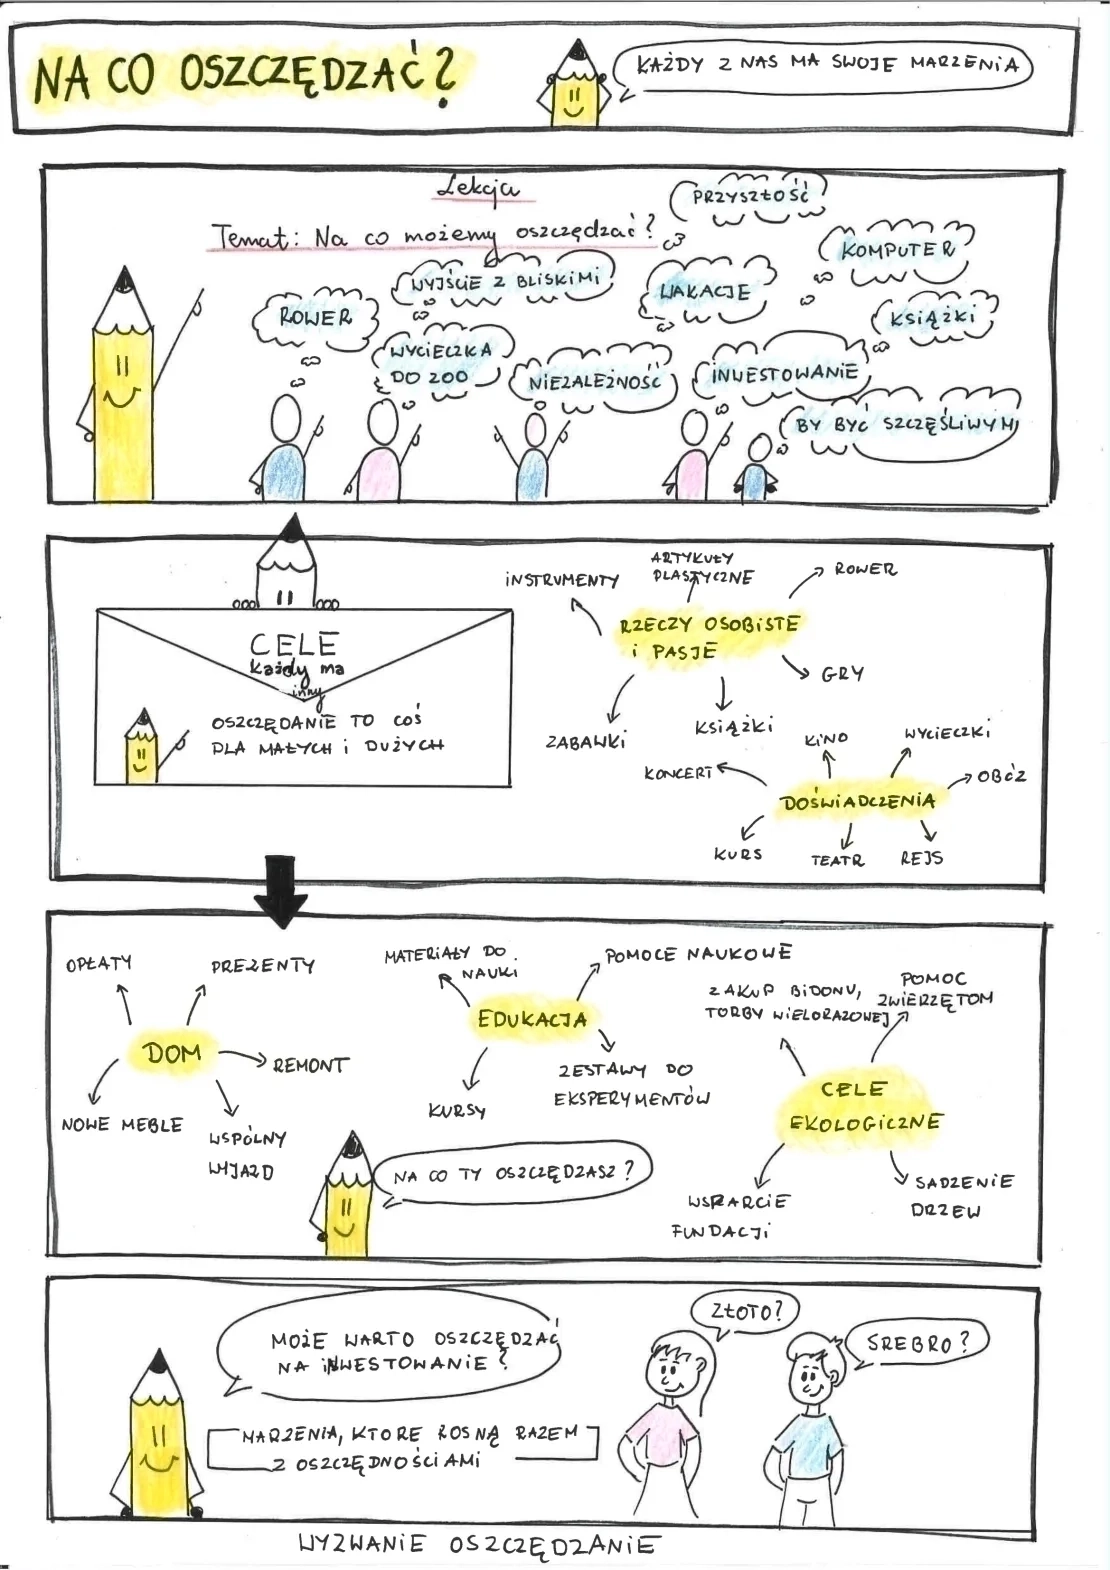 NA CO OSZCZĘDZAĆ?
KAŻDY Z NAS MA SWOJE MARZENIA
Lekcja
Temat: Na co możemy oszczędzać?
PRZYSZŁOŚĆ
KOMPUTER
WYJŚCIE Z BLISKIMI
WAKACJE
ROWER
KSIĄŻKI
WYCIECZKA
DO ZOO
NIEZALEŻNOŚĆ
INWESTOWANIE
BY BYĆ SZCZĘŚLIWYM
CELE
każdy ma
inny
OSZCZĘDANIE TO COŚ
DLA MAŁYCH i DUŻYCH
INSTRUMENTY
ARTYKUŁY
PLASTYCZNE
ROWER
RZECZY OSOBISTE
i PASJE
GRY
ZABAWKI
KSIĄŻKI
KONCERT
KINO
WYCIECZKI
OBÓZ
DOŚWIADCZENIA
KURS
TEATR
REJS
OPŁATY
PREZENTY
DOM
REMONT
NOWE MEBLE
WSPÓLNY
WYJAZD
MATERIAŁY DO
NAUKI
POMOCE NAUKOWE
EDUKACJA
KURSY
ZESTAWY DO
EKSPERYMENTÓW
ZAKUP BIDONU,
TORBY WIELORAZOWEJ
POMOC
ZWIERZĘTOM
CELE
EKOLOGICZNE
WSPARCIE
FUNDACJI
SADZENIE
DRZEW
NA CO TY OSZCZĘDZASZ?
MOŻE WARTO OSZCZĘDZAĆ
NA INWESTOWANIE?
ZŁOTO?
SREBRO?
MARZENIA, KTÓRE ROSNĄ RAZEM
Z OSZCZĘDNOŚCIAMI
WYZWANIE OSZCZĘDZANIE